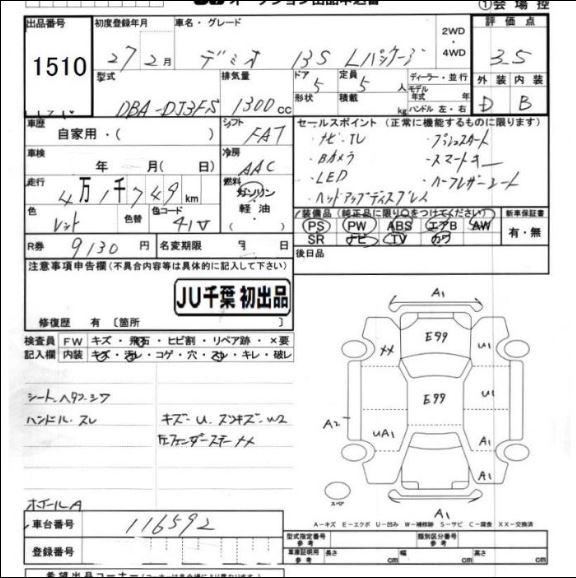 ①会場控
出品番号
1510
初度登録年月
27年2月
車名・グレード
デミオ 13S Lパッケージ
2WD
・
4WD
評価点
3.5
型式
DBA-DJ3FS
排気量
1300cc
ドア
5
形状
定員
5人
積載
kg
ディーラー・並行
モデル
年式 年
ハンドル 左・右
外装
D
内装
B
車歴
自家用・( )
シフト
FAT
車検
年 月(日)
冷房
AAC
走行
4万1千749km
燃料
ガソリン
・軽油・
( )
色
レッド
色替
色コード
41V
R券
9130円
名変期限
月 日
セールスポイント (正常に機能するものに限ります)
・ナビ・TV ・プッシュスタート
・Bカメラ ・スマートキー
・LED ・ハーフレザーシート
・ヘッドアップディスプレス
装備品 (純正品に限り○をつけてください)
PS PW ABS エアB AW
SR ナビ TV カワ
新車保証書
有・無
後日品
注意事項申告欄 (不具合内容等は具体的に記入して下さい)
JU千葉 初出品
修復歴 有 〔箇所
検査員
記入欄
FW キズ・飛石・ヒビ割・リペア跡・×要
内装 キズ・汚レ・コゲ・穴・スレ・キレ・破レ
シートヘタリ・シワ
ハンドル・スレ
キズ・U・スンキズ・W2
左フェンダーステーナメ
ホイールA
A1
E99
XX
U1
E99
U1
A2
UA1
A1
A1
A1
スペア
A－キズ E－エクボ U－凹み W－補修跡 S－サビ C－腐食 XX－交換済
車台番号
116592
登録番号
型式指定番号
参考
類別区分番号
参考
車車証明用
参考
長さ cm
幅 cm
高さ cm
希望出品コーナー